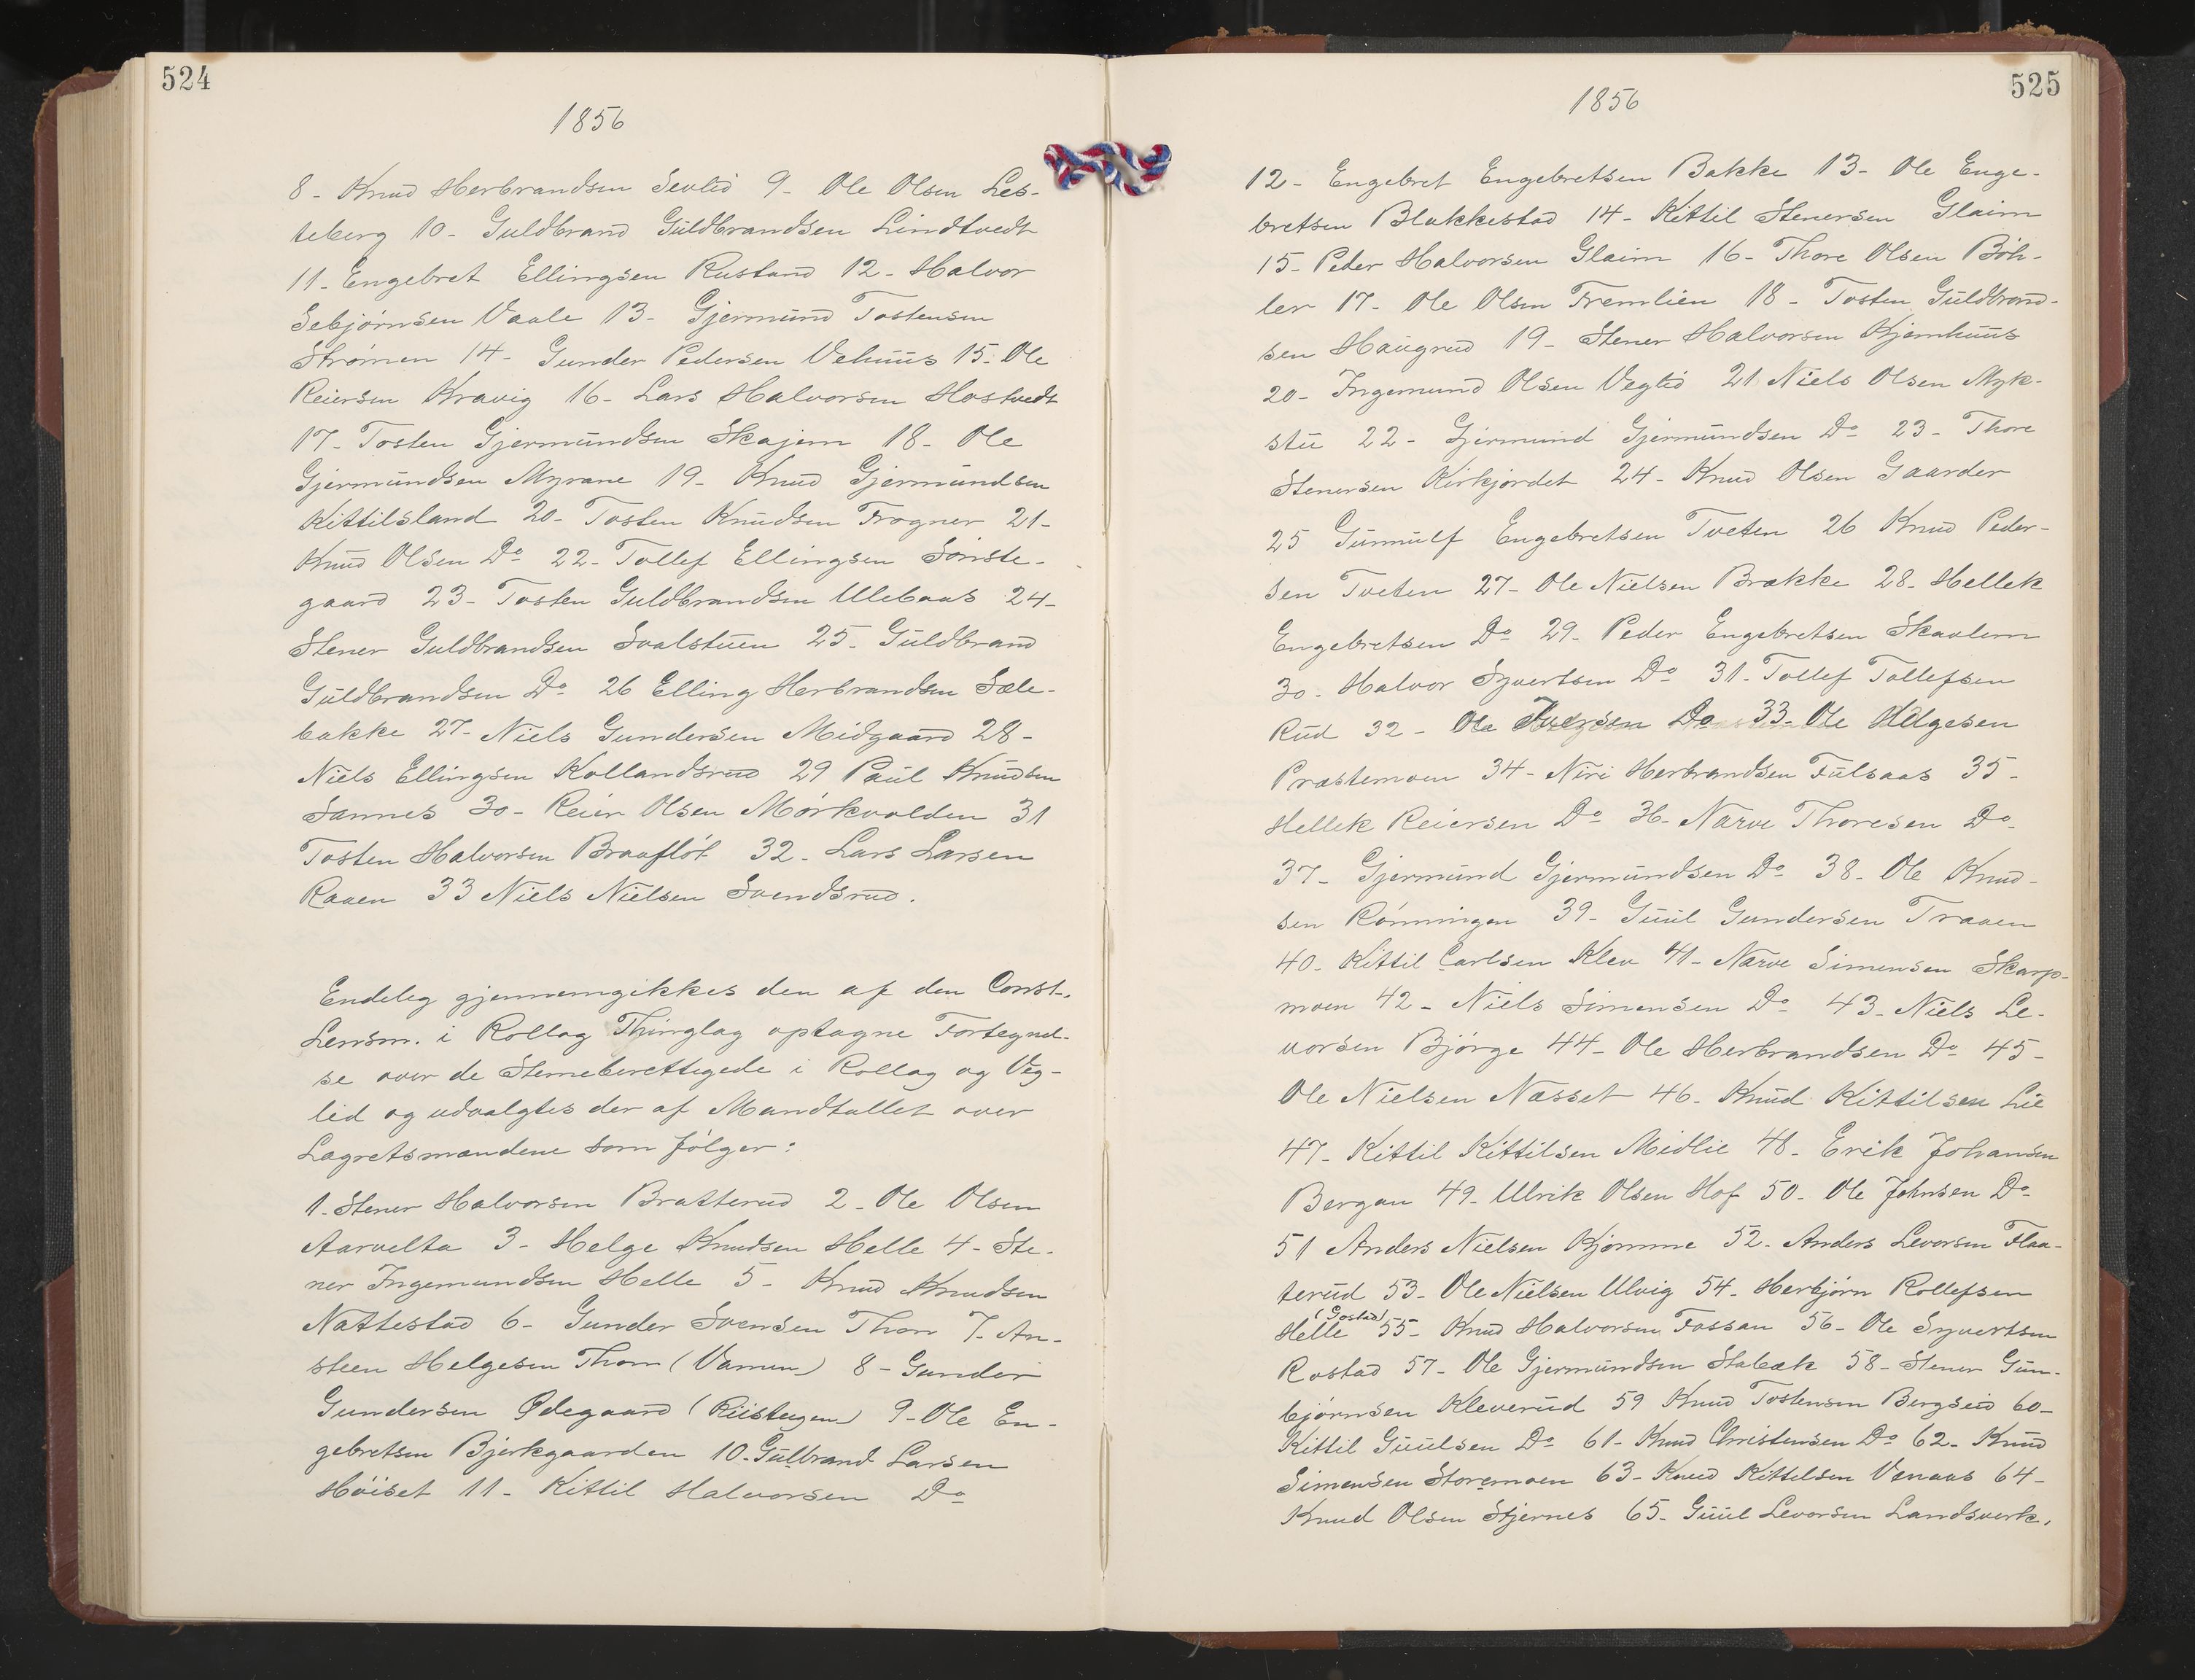 524
1856
8 - Knud Herbrandsen Sevlid 9 - Ole Olsen Les-
teberg 10 - Guldbrand Güldbrandsen Lindtvedt
11 - Engebret Ellingsen Rustand 12 - Halvor
Sebjørnsen Vaale 13 - Gjermünd Tostensen
Strømen 14 - Gunder Pedersen Vehuus 15. Ole
Reiersen Kravig 16 - Lars Halvorsen Hostvedt
17 - Tosten Gjermündsen Skajem 18 - Ole
Gjermündsen Myrane 19 - Knud Gjermündsen
Kittilsland 20 - Tosten Knüdsen Frogner 21 -
Knud Olsen Do 22 - Tollef Ellingsen Sønste-
gaard 23 - Tosten Guldbrandsen Ulebaas 24 -
Stener Guldbrandsen Svalstuen 25 - Güldbrand
Güldbrandsen Do 26 Elling Herbrandsen Sæle-
bakke 27 - Niels Gundersen Midgaard 28 -
Niels Ellingsen Kollandsrud 29 Paul Knüdsen
Sannes 30 - Reier Olsen Mørkvolden 31
Tosten Halvorsen Braafløt 32 - Lars Larsen
Raaen 33 Niels Nielsen Svendsrud.
Endelig gjennemgikkes den af den Const.
Lensm. i Rollag Thinglag optagne Fortegnel-
se over de Stemeberettigede i Rollag og Veg-
lid og udvalgtes der af Mandtallet over
Lagretsmændene som følger:
1. Stener Halvorsen Bratterud 2 - Ole Olsen
Aarvelta 3 - Helge Knudsen Helle 4 - Ste-
ner Ingemundsen Helle 5 - Knud Knudsen
Nattestad 6 - Gunder Svensen Thon 7 - An-
steen Helgesen Thon (Vamen) 8 - Gunder
Gundersen Ødegaard (Riisteigen) 9 - Ole En-
gebretsen Bjerkgaarden 10 - Gulbrand Larsen
Høiset 11 - Kittil Halvorsen Do
525
1856
12 - Engebret Engebretsen Bakke 13 - Ole Enge-
bretsen Blakkestad 14 - Kittil Stenersen Glaim
15 - Peder Halvorsen Glaim 16 - Thore Olsen Bøh-
ler 17 - Ole Olsen Fremlien 18 - Tosten Güldbrand-
sen Haugrud 19 - Stener Halvorsen Kjemhuus
20 - Ingemund Olsen Veglid 21 Niels Olsen Myk-
stu 22 - Gjermund Gjermündsen Do 23 - Thore
Stenersen Kirkjordet 24 - Knud Olsen Gaarder
25 Gunnulf Engebretsen Tveten 26 Knud Peder-
sen Tveten 27 - Ole Nielsen Brække 28 - Hellek
Engebretsen Do 29 - Peder Engebretsen Skavlem
30 - Halvor Syvertsen Do 31 - Tollef Tollefsen
Rud 32 - Ole Iversen Do 33 - Ole Helgesen
Præstemoen 34 - Niri Herbrandsen Fulsaas 35 -
Hellek Reiersen Do 36 - Narve Thoresen Do
37 - Gjermünd Gjermündsen Do 38 - Ole Knud-
sen Rønningen 39 - Guul Gundersen Traaen
40 - Kittil Carlsen Klev 41 - Narve Simensen Skarp-
moen 42 - Niels Simensen Do 43 - Niels Le-
vorsen Bjørge 44 - Ole Herbrandsen Do 45 -
Ole Nielsen Næsset 46 - Knud Kittilsen Lie
47 - Kittil Kittilsen Midlie 48 - Erik Johansen
Bergan 49 - Ulrik Olsen Hof 50 - Ole Johnsen Do
51 Anders Nielsen Kjømme 52 - Anders Levorsen Flaa-
terud 53 - Ole Nielsen Ulvig 54 - Herbjørn Rollefsen
Helle (Gostad) 55 - Knud Halvorsen Fossan 56 - Ole Syvertsen
Rostad 57 - Ole Gjermundsen Stabæk 58 - Stener Gun-
bjørnsen Kleverud 59 Knud Tostensen Bergseid 60 -
Kittil Guulsen Do 61 - Knud Christensen Do 62 - Knud
Simensen Storemoen 63 - Knud Kittelsen Vanaas 64 -
Knud Olsen Stjernes 65 - Guul Levorsen Landsverk,